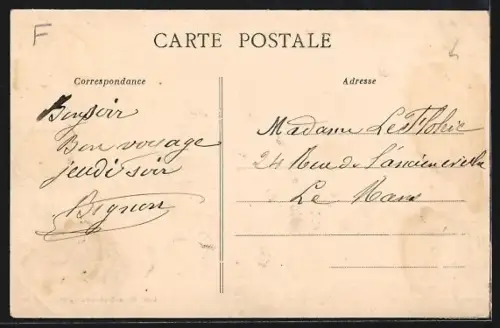 F
CARTE POSTALE
Correspondance
Adresse
Bonsoir
Bon voyage
jeudi soir
Bignon
Madame
24 Rue de l'ancien
Le Mans